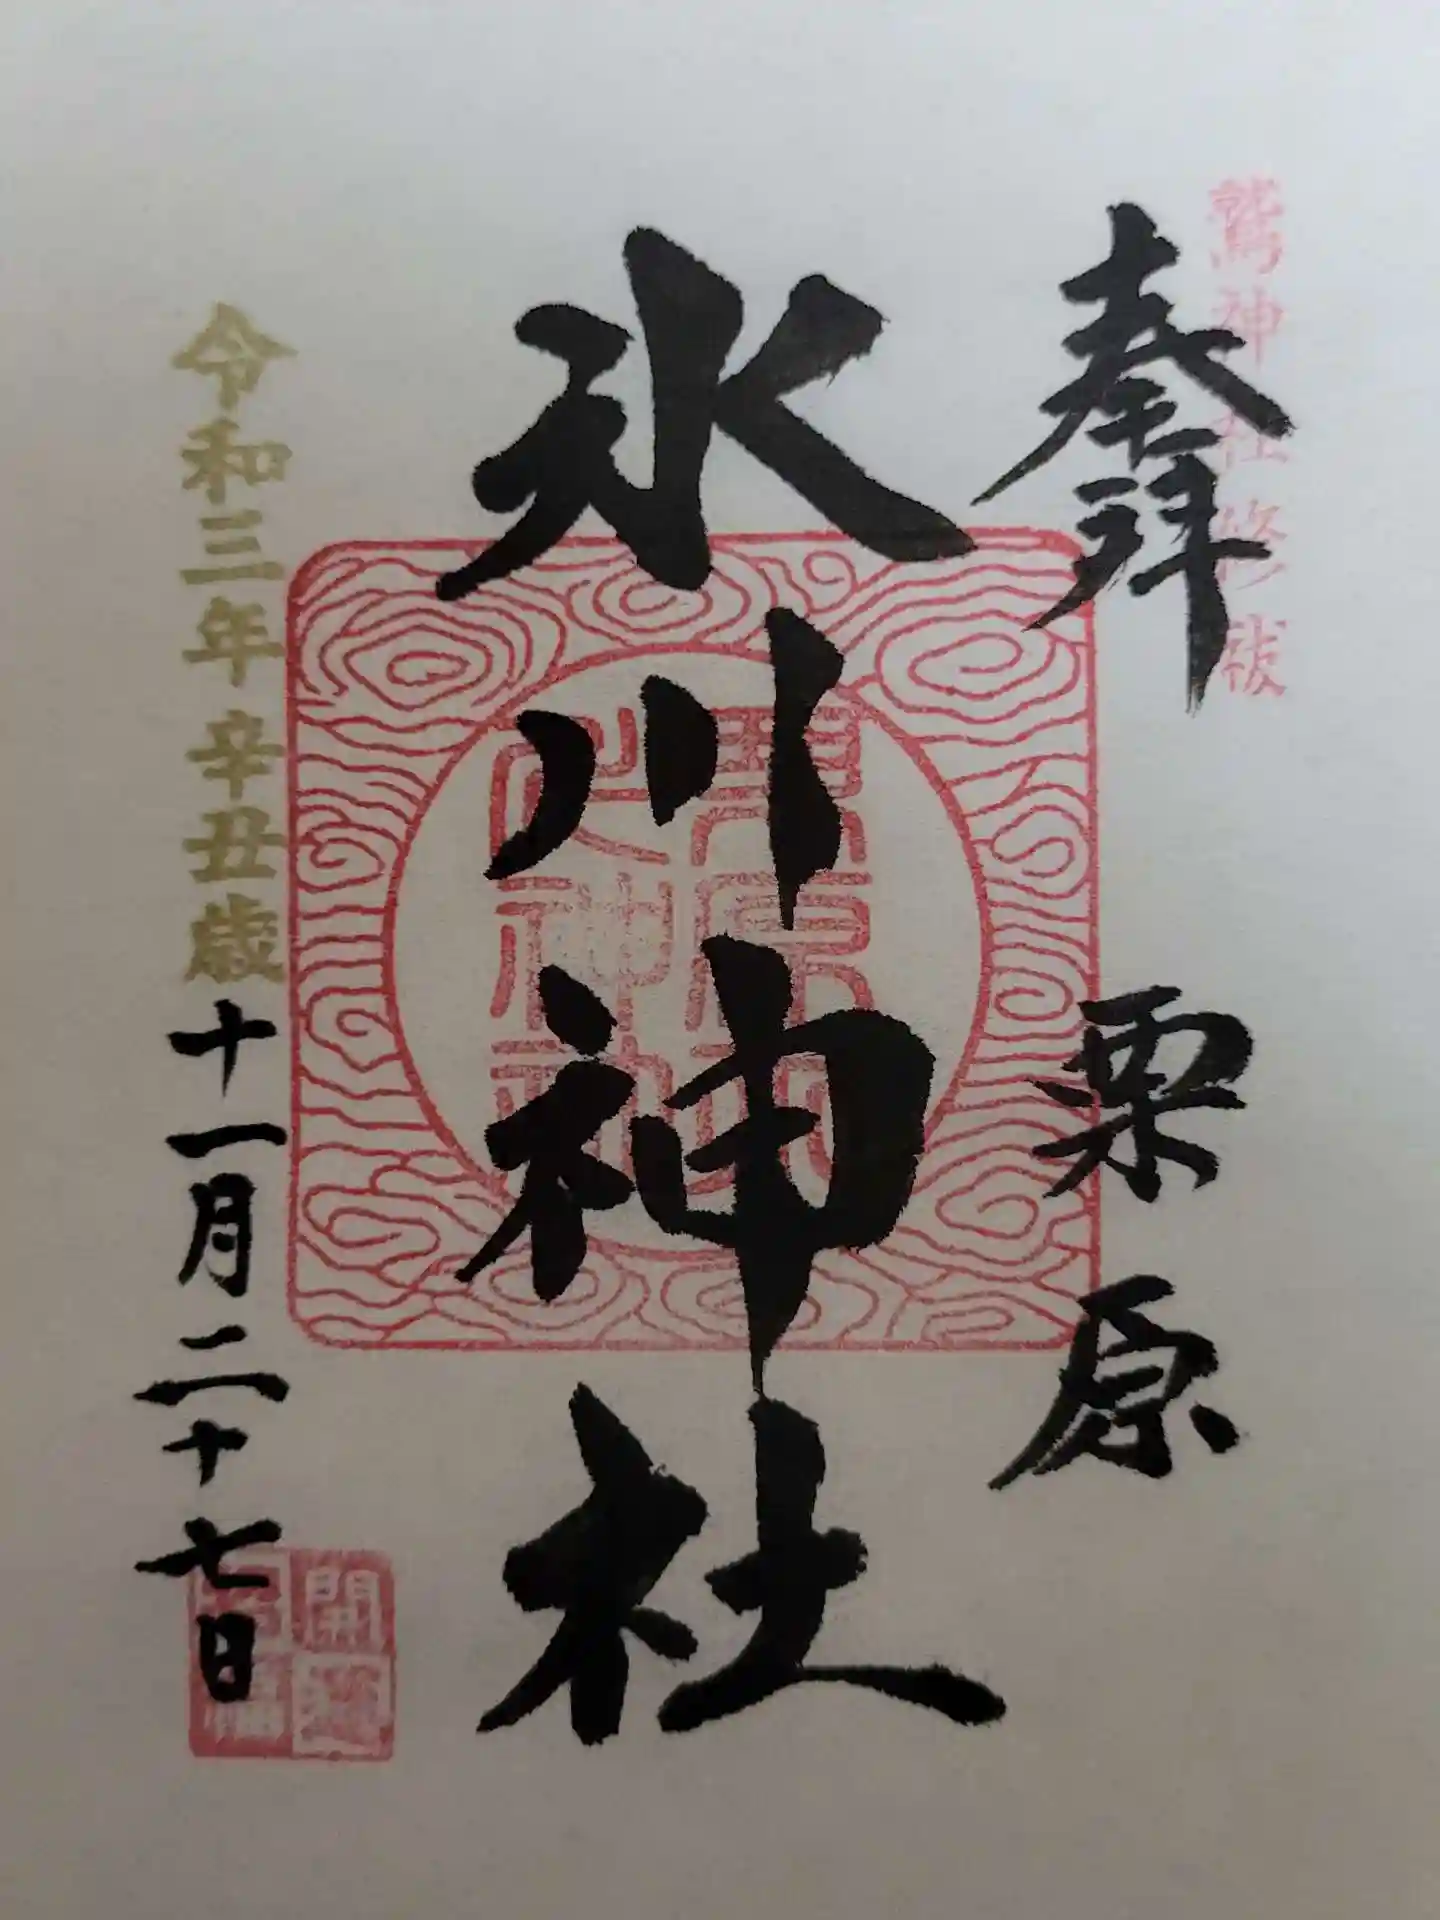 鷲神社修祓
奉拝
栗原
氷川神社
令和三年 辛丑歳
十一月二十七日
開運